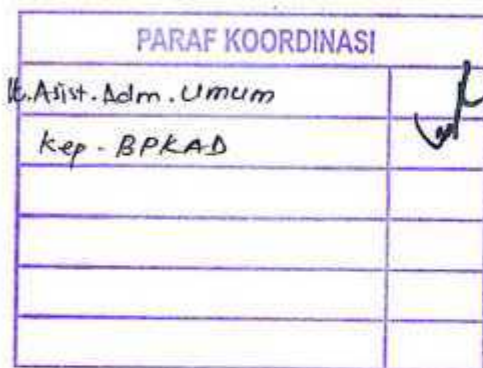 PARAF KOORDINASI
Asist. Adm. Umum
Kep - BPKAD